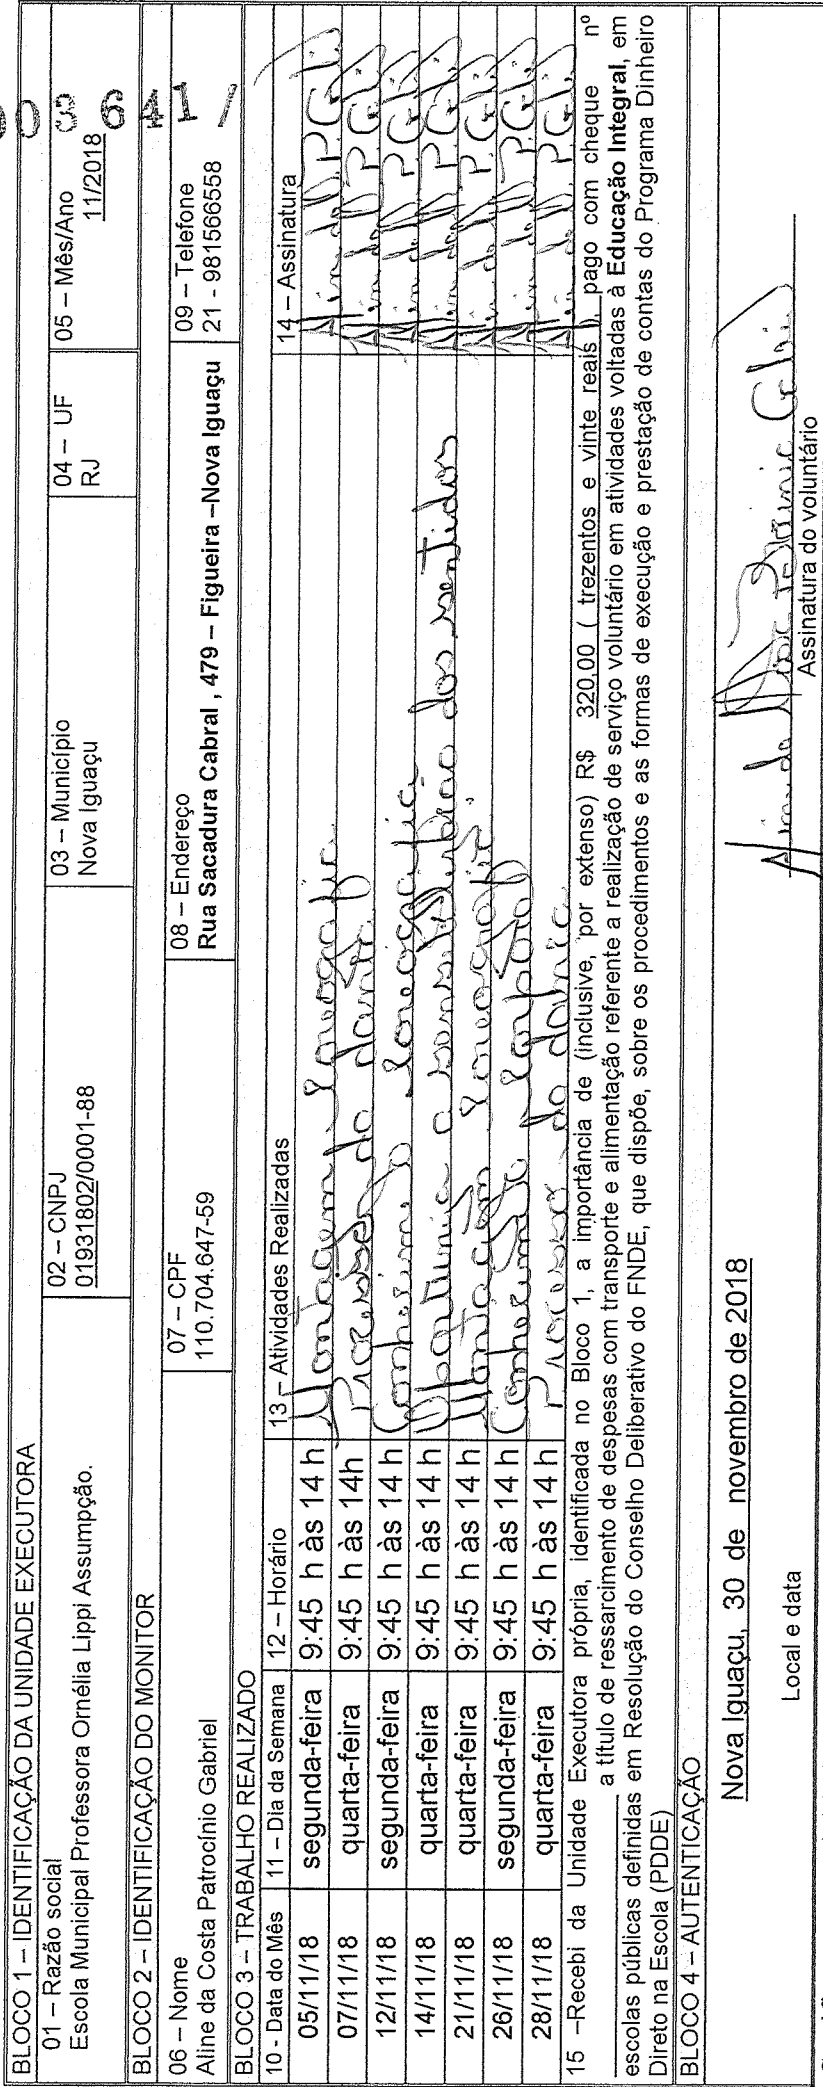 003641/
BLOCO 1 – IDENTIFICAÇÃO DA UNIDADE EXECUTORA
01 – Razão social
Escola Municipal Professora Ornélia Lippi Assumpção.
02 – CNPJ
01931802/0001-88
03 – Município
Nova Iguaçu
04 – UF
RJ
05 – Mês/Ano
11/2018
BLOCO 2 – IDENTIFICAÇÃO DO MONITOR
06 – Nome
Aline da Costa Patrocínio Gabriel
07 – CPF
110.704.647-59
08 – Endereço
Rua Sacadura Cabral , 479 – Figueira –Nova Iguaçu
09 – Telefone
21 - 981566558
BLOCO 3 – TRABALHO REALIZADO
10 - Data do Mês 11 – Dia da Semana 12 – Horário 13 – Atividades Realizadas 14 – Assinatura
05/11/18 segunda-feira 9:45 h às 14 h Montagem
07/11/18 quarta-feira 9:45 h às 14h Processo da dança
12/11/18 segunda-feira 9:45 h às 14 h
14/11/18 quarta-feira 9:45 h às 14 h dos sentidos
21/11/18 quarta-feira 9:45 h às 14 h
26/11/18 segunda-feira 9:45 h às 14 h
28/11/18 quarta-feira 9:45 h às 14 h Processo da dança
15 –Recebi da Unidade Executora própria, identificada no Bloco 1, a importância de (inclusive, por extenso) R$ 320,00 ( trezentos e vinte reais ), pago com cheque nº
a título de ressarcimento de despesas com transporte e alimentação referente a realização de serviço voluntário em atividades voltadas à Educação Integral, em
escolas públicas definidas em Resolução do Conselho Deliberativo do FNDE, que dispõe, sobre os procedimentos e as formas de execução e prestação de contas do Programa Dinheiro
Direto na Escola (PDDE)
BLOCO 4 – AUTENTICAÇÃO
Nova Iguaçu, 30 de novembro de 2018
Local e data
Assinatura do voluntário